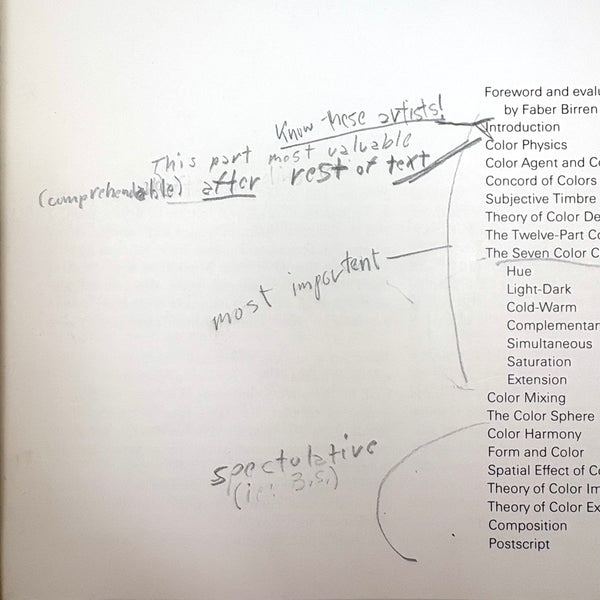 Know these artists!
This part most valuable
(comprehendable) after rest of text
most important
spectulative
(ie: B.S.)
Foreword and evalu
by Faber Birren
Introduction
Color Physics
Color Agent and Co
Concord of Colors
Subjective Timbre
Theory of Color De
The Twelve-Part Co
The Seven Color C
Hue
Light-Dark
Cold-Warm
Complementar
Simultaneous
Saturation
Extension
Color Mixing
The Color Sphere
Color Harmony
Form and Color
Spatial Effect of Co
Theory of Color Im
Theory of Color Ex
Composition
Postscript